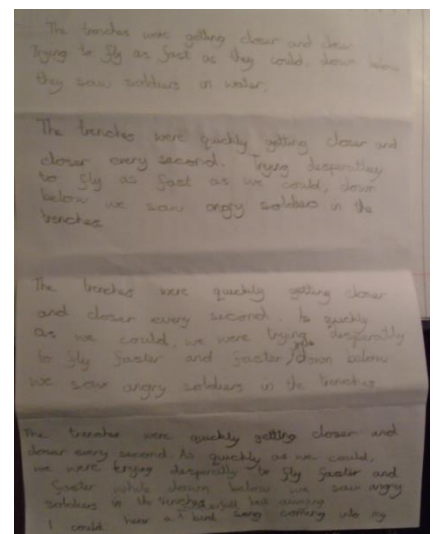 The trenches were getting closer and closer
Trying to fly as fast as they could, down below
they saw soldiers in water.
The trenches were quickly getting closer and
closer every second. Trying desperatley
to fly as fast as we could, down
below we saw angry soldiers in the
trenches
The trenches were quickly getting closer
and closer every second. As quickly
as we could, we were trying desperatly
to fly faster and faster, down below
we saw angry soldiers in the trenches
The trenches were quickly getting closer and
closer every second. As quickly as we could,
we were trying desperatly to fly faster and
faster while down below we saw angry
soldiers in the trenches but
I could hear a bird song coming into my